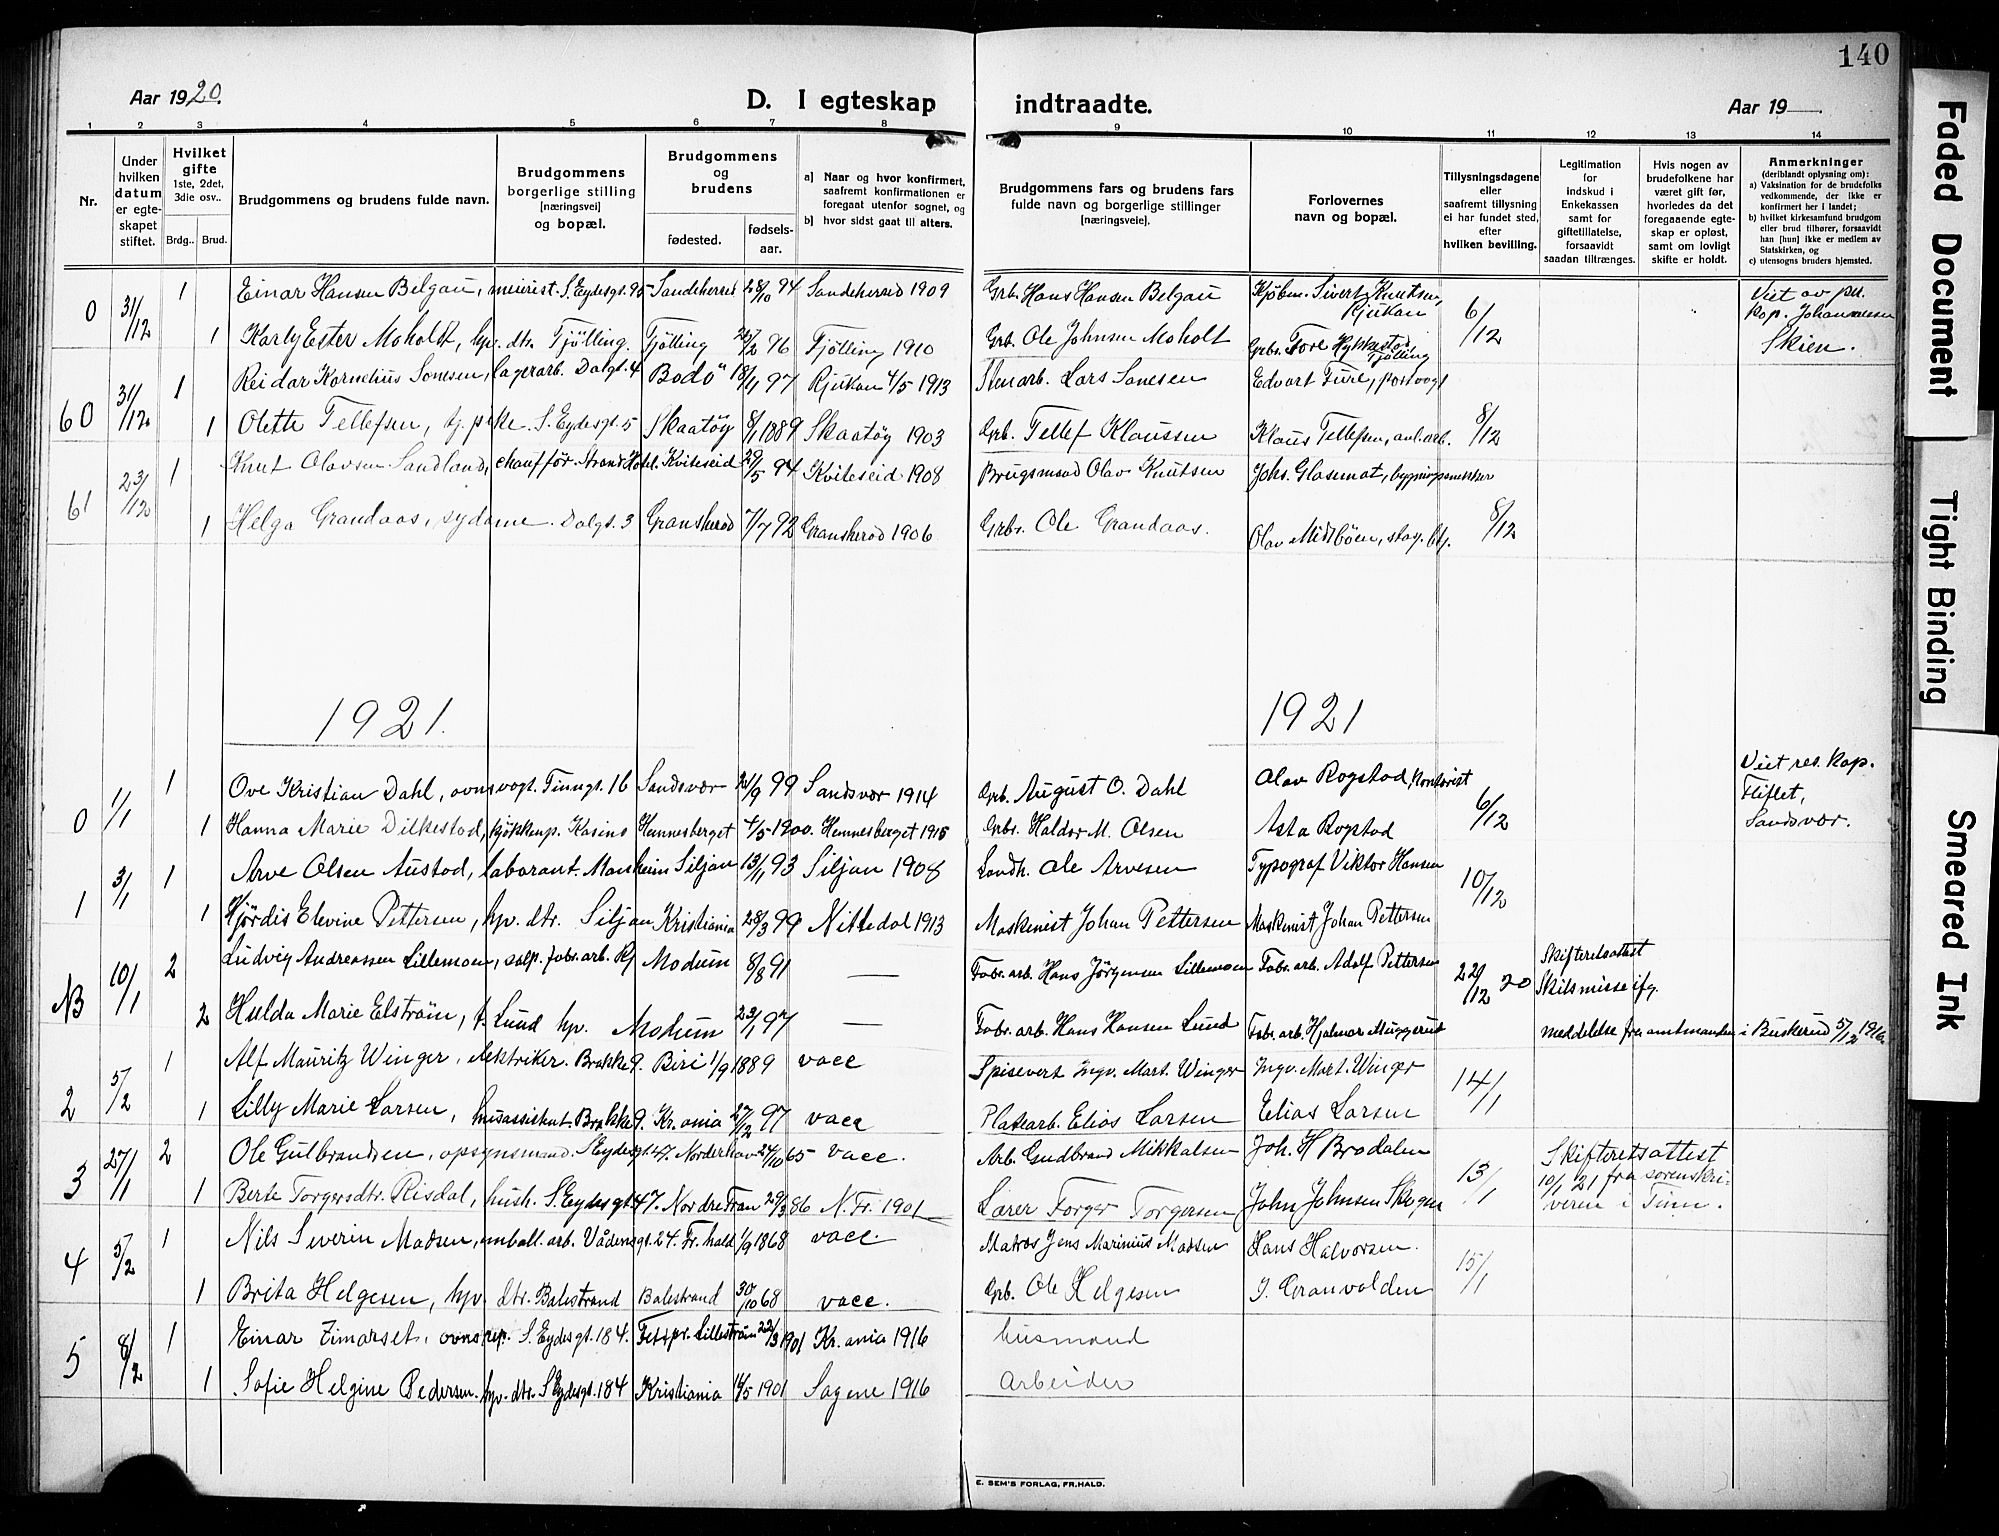 140
Aar 1920.
D. I egteskap indtraadte.
Aar 19
1 2 3 4 5 6 7 8 9 10 11 12 13 14
Nr.
Under hvilken datum er egteskapet stiftet.
Hvilket gifte 1ste, 2det, 3die osv..
Brdg.. Brud.
Brudgommens og brudens fulde navn.
Brudgommens borgerlige stilling [næringsvei] og bopæl.
Brudgommens og brudens
fødested. fødsels-aar.
a) Naar og hvor konfirmert, saafremt konfirmationen er foregaat utenfor sognet, og
b) hvor sidst gaat til alters.
Brudgommens fars og brudens fars fulde navn og borgerlige stillinger [næringsveie].
Forlovernes navn og bopæl.
Tillysningsdagene eller saafremt tillysning ei har fundet sted, efter hvilken bevilling.
Legitimation for indskud i Enkekassen samt for giftetillatelse, forsaavidt saadan tiltrænges.
Hvis nogen av brudefolkene har været gift før, hvorledes da det foregaaende egteskap er opløst, samt om lovligt skifte er holdt.
Anmerkninger (deriblandt oplysning om):
a) Vaksination for de brudefolks vedkommende, der ikke er konfirmert her i landet;
b) hvilket kirkesamfund brudgom eller brud tilhører, forsaavidt han [hun] ikke er medlem av Statskirken, og
c) utensogns bruders hjemsted.
0 31/12 1 Einar Hansen Belgau, meierist. S. Eydesgt. 95 Sandeherred 28/10 94 Sandeherred 1909 Grb. Hans Hansen Belgau Kjøbm. Sivert Knutsen, Rjukan 6/12 Viet av pr. kap. Johannesen Skien.
1 Karly Ester Moholt, hp. dtr. Tjølling. Tjølling 25/2 96 Tjølling 1910 Grb. Ole Johnsen Moholt Grbr. Tore Hykkestad, Tjølling
60 31/12 1 Reidar Kornelius Sonesen, lagerarb. Dalgt. 4 Bodø 18/1 97 Rjukan 4/5 1913 Stenarb. Lars Sonesen Edvart Ture, postvogt
1 Olette Tellefsen, tj. pike. S. Eydesgt. 5 Skaatøy 8/1 1889 Skaatøy 1903 Grb. Tellef Klaussen Klaus Tellefsen, anl. arb. 8/12
61 23/12 1 Knut Olavsen Sandland, chauffør Strand Hotel. Kviteseid 29/5 94 Kviteseid 1908 Brugsmand Olav Knutsen Johs. Glasemat, bygningssnekker
1 Helga Grandaas, sydame. Dalgt. 3 Gransherad 7/7 92 Gransherad 1906 Grbr. Ole Grandaas. Olav Midtbøen, stag. btj. 8/12
1921. 1921
0 1/1 1 Ove Kristian Dahl, ovnsvogt. Tinngt. 16 Sandsvær 21/9 99 Sandsvær 1914 Grb. August O. Dahl Olav Rogstad, kontorist Viet res. kap. Fliflet, Sandsvær.
1 Hanna Marie Dilkestad, kjøkkenp. Kasino Hennesberget 4/5 1900. Hennesberget 1915 Grbr. Haldor M. Olsen Asta Rogstad 6/12
1 3/1 1 Arve Olsen Austad, laborant. Mansheim Siljan 13/1 93 Siljan 1908 Landh. Ole Arvesen Typograf Viktor Hansen 10/12
1 Hjørdis Elevine Pettersen, hp. dtr. Siljan Kristiania 28/3 99 Nittedal 1913 Maskinist Johan Pettersen Maskinist Johan Pettersen
NB 10/1 2 Ludvig Andreassen Lillemoen, salp. fabr. arb. Rj Modum 8/8 91 — Fabr. arb. Hans Jörgensen Lillemoen Fabr. arb. Adolf Pettersen 22/12 20 Skifteretsattest Skilsmisse ifg.
2 Hulda Marie Elström, f. Lund hp. Modum 23/1 97 — Fabr. arb. Hans Hansen Lund Fabr. arb. Hjalmar Muggerud meddelelse fra amtmanden i Buskerud 5/12 1916
2 5/2 1 Alf Mauritz Winger, elektriker. Brakke 9. Biri 1/9 1889 vacc Spisevert Ingv. Mart. Winger Ingv. Mart. Winger 14/1
1 Lilly Marie Larsen, husassistent. Brakke 9. Kr.ania 27/12 97 vacc Platearb. Elias Larsen Elias Larsen
3 27/1 2 Ole Gulbrandsen, opsynsmand. S Eydesgt. 47. Norderhov 24/10 65 - vacc. Arb. Gudbrand Mikkelsen Joh. H Brodalen 13/1 Skifteretsattest 10/1 21 fra sorenskriveren i Tinn.
1 Berte Torgersdtr. Risdal, hush. S. Eydesgt 47. Nordre Fron 29/3 86 N. Fr. 1901 Lærer Torger Torgersen John Johnsen Skogen
4 5/2 1 Nils Severin Madsen, emball. arb. Vådensgt. 24. Fr. hald 1/9 1868 vacc. Matros Jens Marinius Madsen Hans Halvorsen. 15/1
1 Brita Helgesen, hp. dtr. Balestrand Balestrand 30/10 68 vacc. Grb. Ole Helgesen J. Granvolden
5 8/2 1 Einar Zimarset, ovnsrep. S. Eydesgt. 184. Fetspr. Lillestrøm 22/3 1901 Kr.ania 1916 husmand
1 Sofie Helgine Pedersen. hp. dtr. S Eydesgt. 184 Kristiania 14/5 1901 Sagene 1916 Arbeider
E. SEM'S FORLAG, FR.HALD.
Faded Document
Tight Binding
Smeared Ink